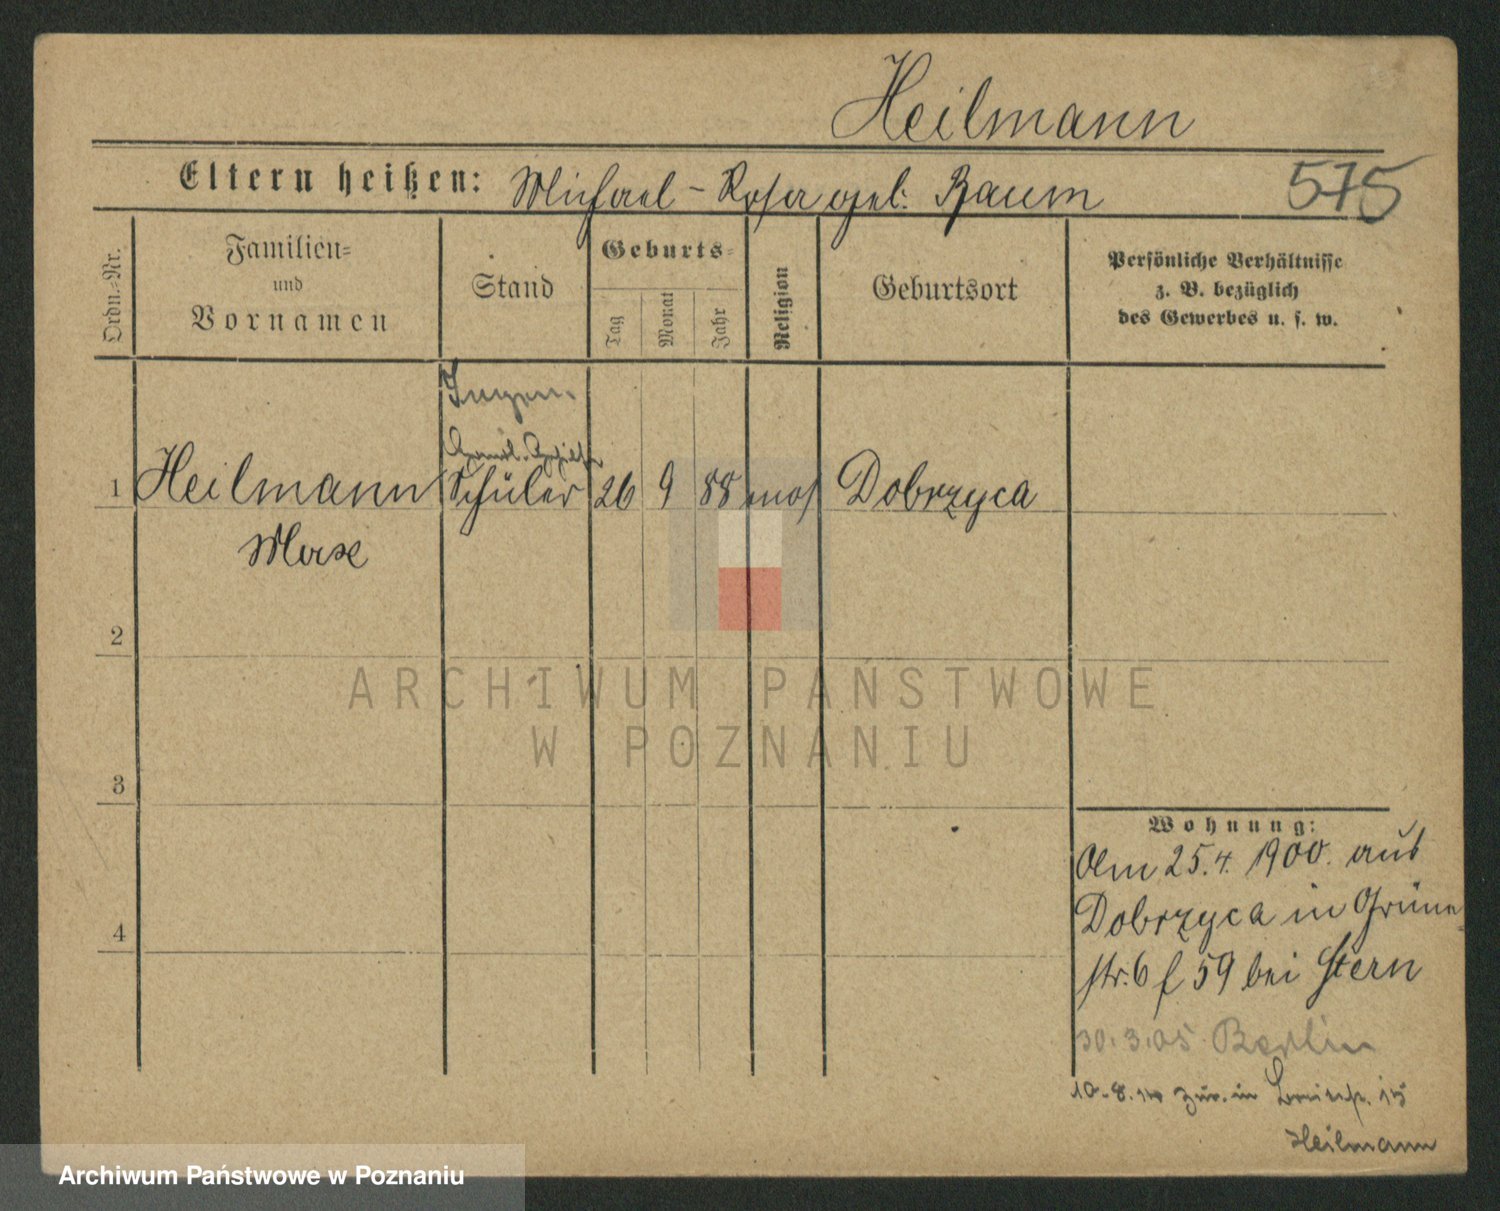 Heilmann
Eltern heißen: Michael - Rosa geb: Baum
575
Ordn.-Nr.
Familien-
und
Vornamen
Stand
Geburts-
Tag
Monat
Jahr
Religion
Geburtsort
Persönliche Verhältnisse
z. B. bezüglich
des Gewerbes u. s. w.
1 Heilmann Schüler 26 9 88 mos Dobrzyca
Max
2
3
4
Wohnung:
Am 25.4. 1900. aus
Dobrzyca in Grüne
str. 6 f 59 bei Stern
30.3.05 Berlin
10.8. zur. in 15
Heilmann
ARCHIWUM PAŃSTWOWE
W POZNANIU
Archiwum Państwowe w Poznaniu